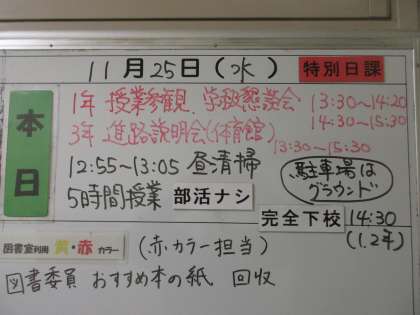 11月25日(水) 特別日課
本日
1年 授業参観 学級懇談会 13:30~14:20
14:30~15:30
3年 進路説明会(体育館) 13:30~15:30
12:55~13:05 昼清掃
駐車場は
グラウンド
5時間授業 部活ナシ
完全下校 14:30
(1.2年)
図書室利用 黄・赤 カラー (赤・カラー担当)
図書委員 おすすめ本の紙 回収